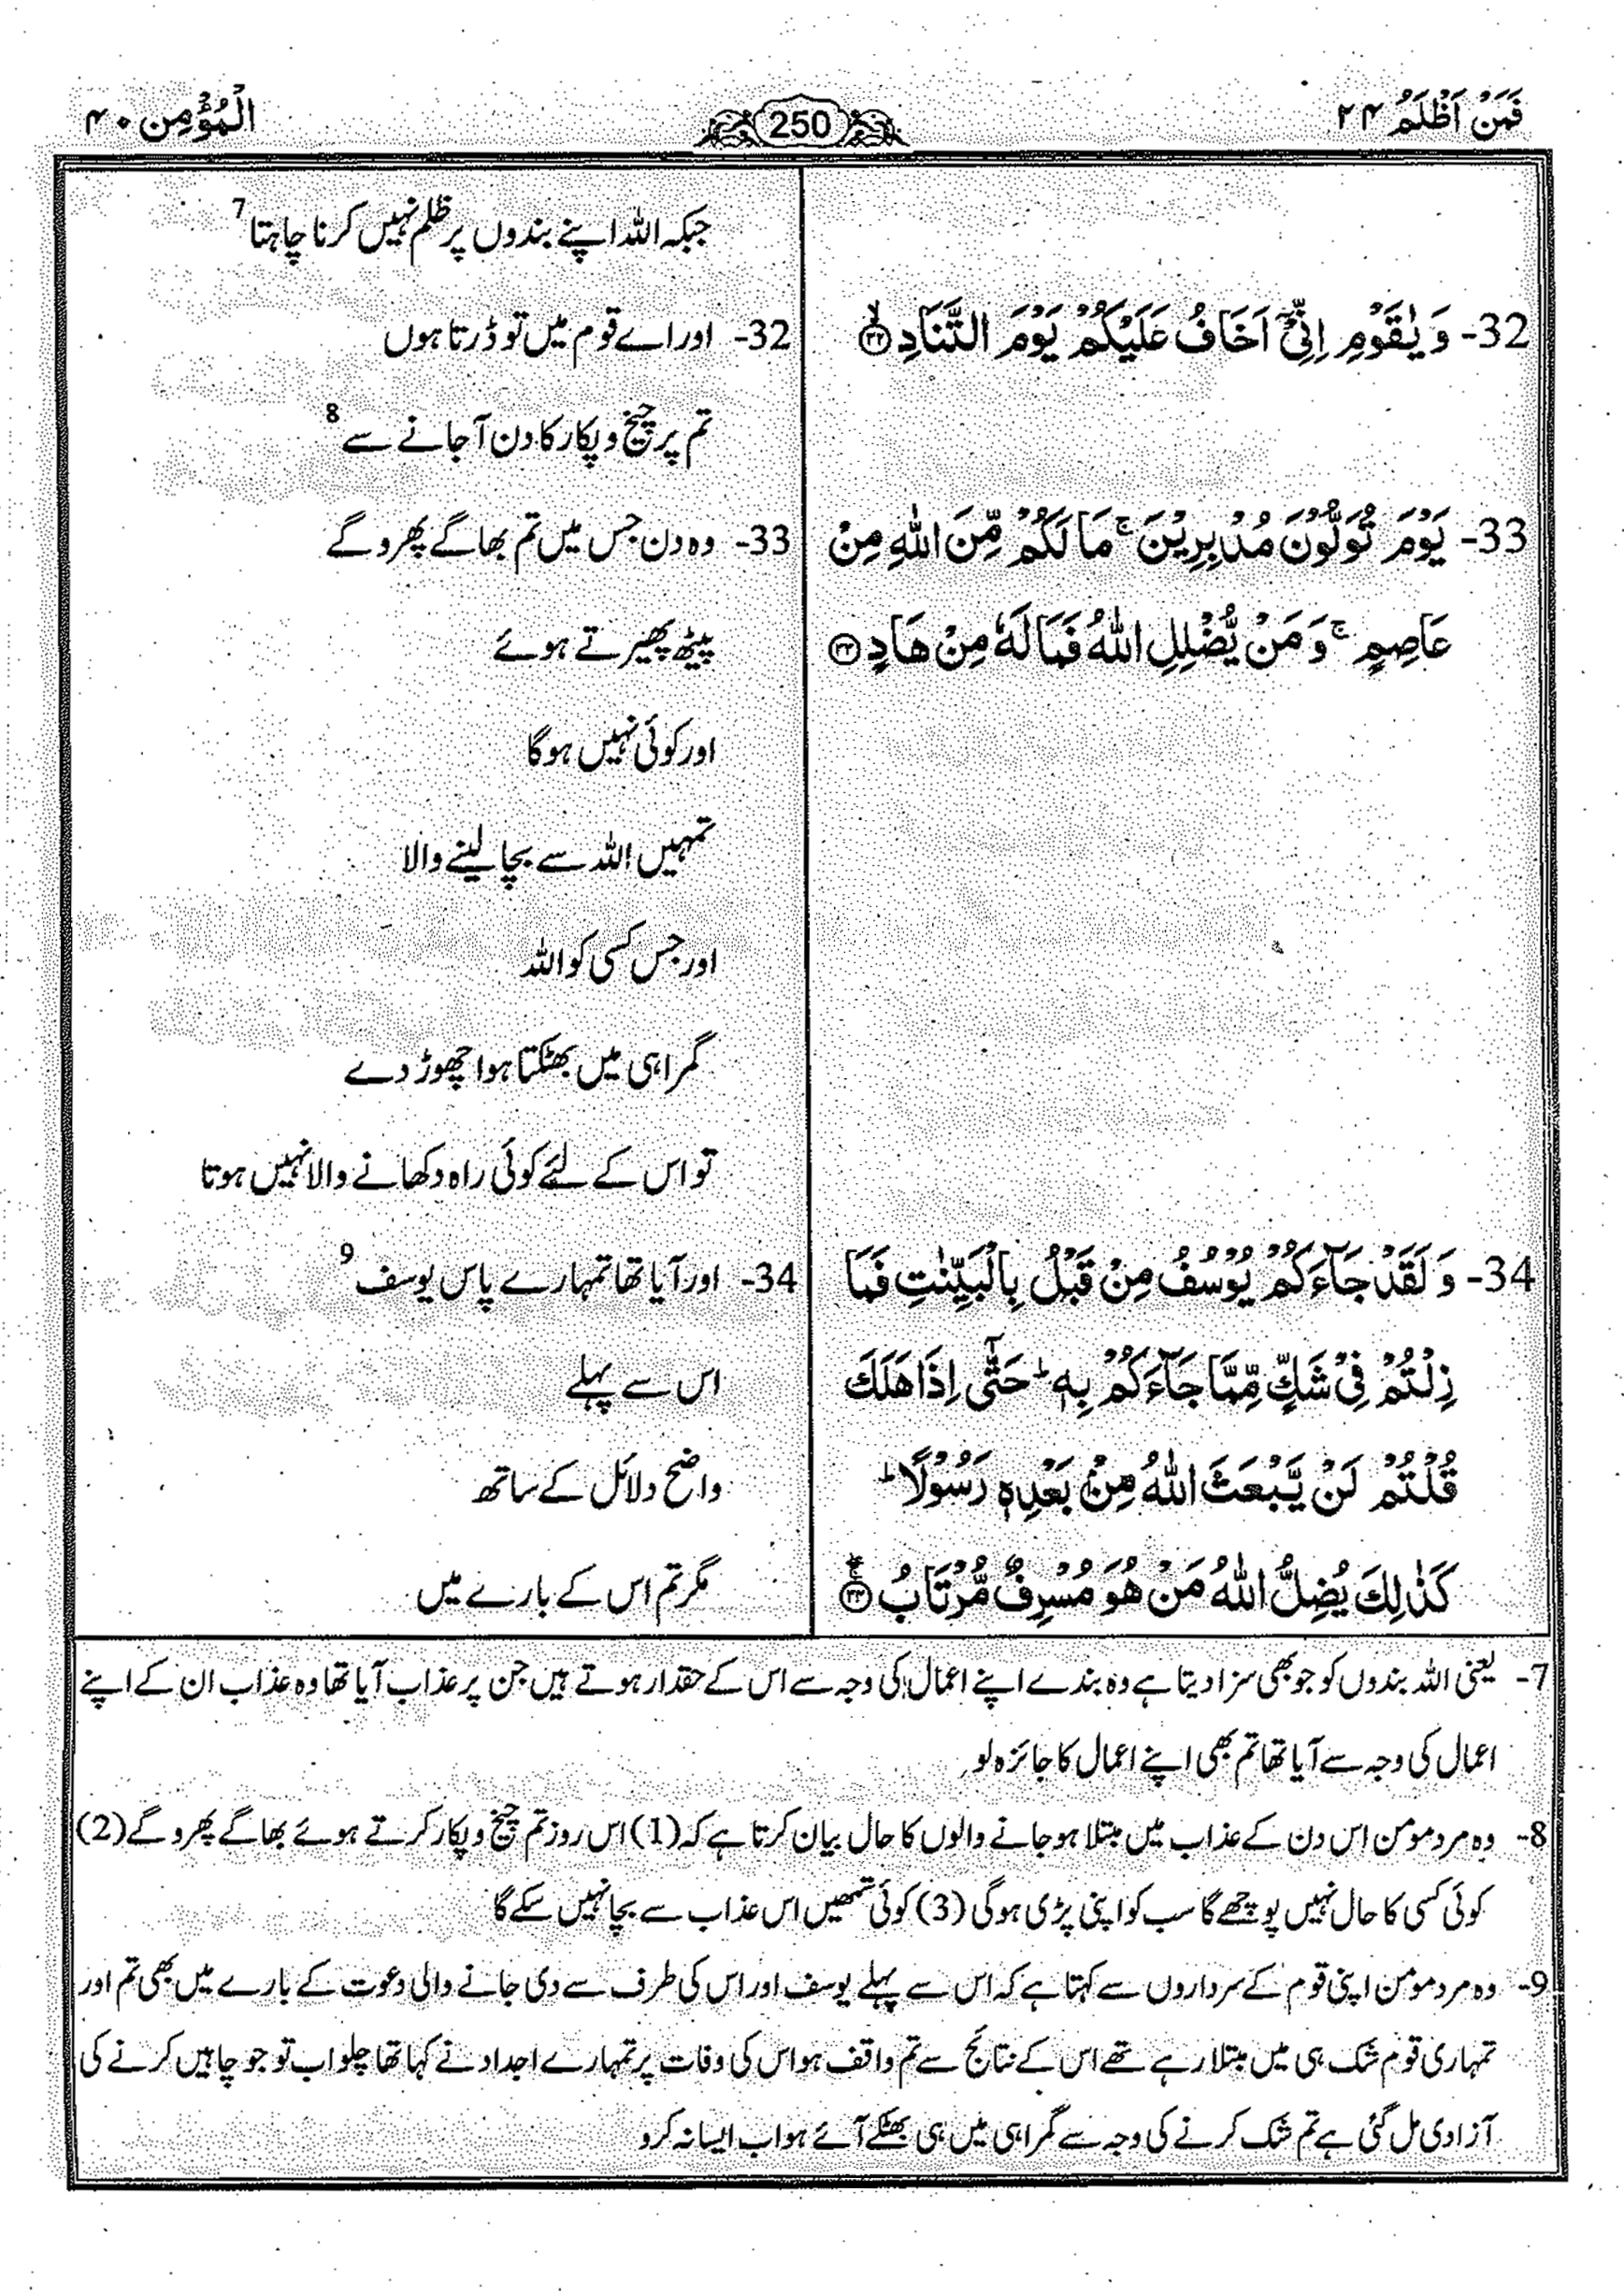 فَمَنۡ اَظۡلَمُ ۲۴
250
الۡمُؤۡمِن ۴۰
جبکہ اللہ اپنے بندوں پر ظلم نہیں کرنا چاہتا 7
32- وَ یٰقَوۡمِ اِنِّیۡۤ اَخَافُ عَلَیۡکُمۡ یَوۡمَ التَّنَادِ ﴿ۙ۳۲﴾
32- اور اے قوم میں تو ڈرتا ہوں
تم پر چیخ و پکار کا دن آ جانے سے 8
33- یَوۡمَ تُوَلُّوۡنَ مُدۡبِرِیۡنَ ۚ مَا لَکُمۡ مِّنَ اللّٰہِ مِنۡ
عَاصِمٍ ۚ وَ مَنۡ یُّضۡلِلِ اللّٰہُ فَمَا لَہٗ مِنۡ ہَادٍ ﴿۳۳﴾
33- وہ دن جس میں تم بھاگے پھرو گے
پیٹھ پھیرتے ہوئے
اور کوئی نہیں ہوگا
تمہیں اللہ سے بچا لینے والا
اور جس کسی کو اللہ
گمراہی میں بھٹکتا ہوا چھوڑ دے
تو اس کے لئے کوئی راہ دکھانے والا نہیں ہوتا
34- وَ لَقَدۡ جَآءَکُمۡ یُوۡسُفُ مِنۡ قَبۡلُ بِالۡبَیِّنٰتِ فَمَا
زِلۡتُمۡ فِیۡ شَکٍّ مِّمَّا جَآءَکُمۡ بِہٖ ؕ حَتّٰۤی اِذَا ہَلَکَ
قُلۡتُمۡ لَنۡ یَّبۡعَثَ اللّٰہُ مِنۡۢ بَعۡدِہٖ رَسُوۡلًا ؕ
کَذٰلِکَ یُضِلُّ اللّٰہُ مَنۡ ہُوَ مُسۡرِفٌ مُّرۡتَابُۨ ﴿ۚۖ۳۴﴾
34- اور آیا تھا تمہارے پاس یوسف 9
اس سے پہلے
واضح دلائل کے ساتھ
مگر تم اس کے بارے میں
7- یعنی اللہ بندوں کو جو بھی سزا دیتا ہے وہ بندے اپنے اعمال کی وجہ سے اس کے حقدار ہوتے ہیں جن پر عذاب آیا تھا وہ عذاب ان کے اپنے
اعمال کی وجہ سے آیا تھا تم بھی اپنے اعمال کا جائزہ لو
8- وہ مرد مومن اس دن کے عذاب میں مبتلا ہو جانے والوں کا حال بیان کرتا ہے کہ (1) اس روز تم چیخ و پکار کرتے ہوئے بھاگے پھرو گے (2)
کوئی کسی کا حال نہیں پوچھے گا سب کو اپنی پڑی ہوگی (3) کوئی تمھیں اس عذاب سے بچا نہیں سکے گا
9- وہ مرد مومن اپنی قوم کے سرداروں سے کہتا ہے کہ اس سے پہلے یوسف اور اس کی طرف سے دی جانے والی دعوت کے بارے میں بھی تم اور
تمہاری قوم شک ہی میں مبتلا رہے تھے اس کے نتائج سے تم واقف ہو اس کی وفات پر تمہارے اجداد نے کہا تھا چلو اب تو جو چاہیں کرنے کی
آزادی مل گئی ہے تم شک کرنے کی وجہ سے گمراہی میں ہی بھٹکے آئے ہو اب ایسا نہ کرو